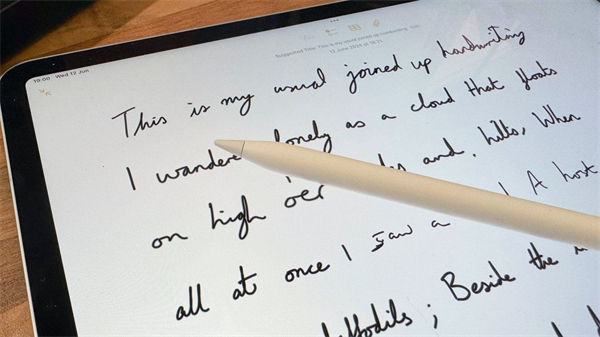 19:00 Wed 12 Jun
Suggested Title: This is my usual joined up handwriting
12 June 2024 at
This is my usual joined up handwriting
I wandere lonely as a cloud that floats
on high o'er and hills, When
all at once I saw a A host
; Beside the